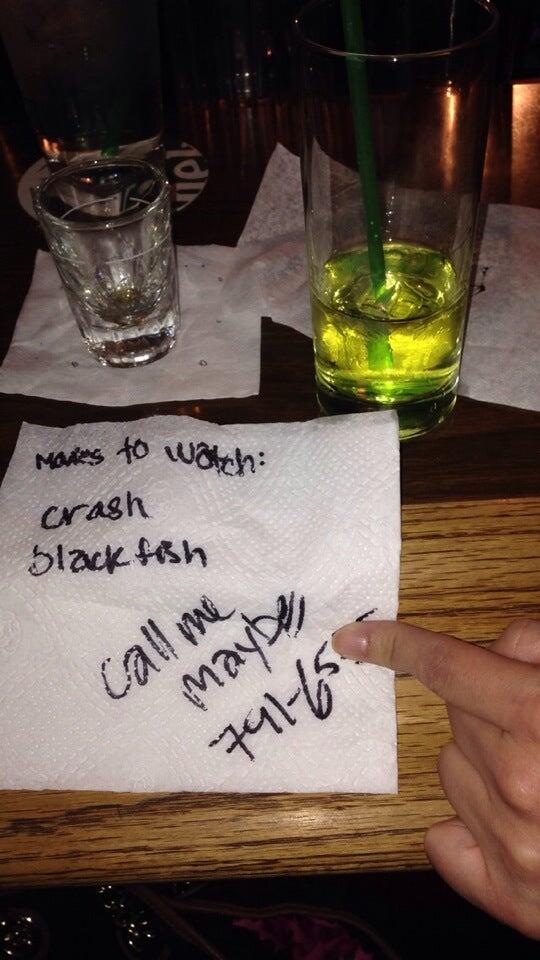 Movies to watch:
crash
blackfish
Call me
maybe!!